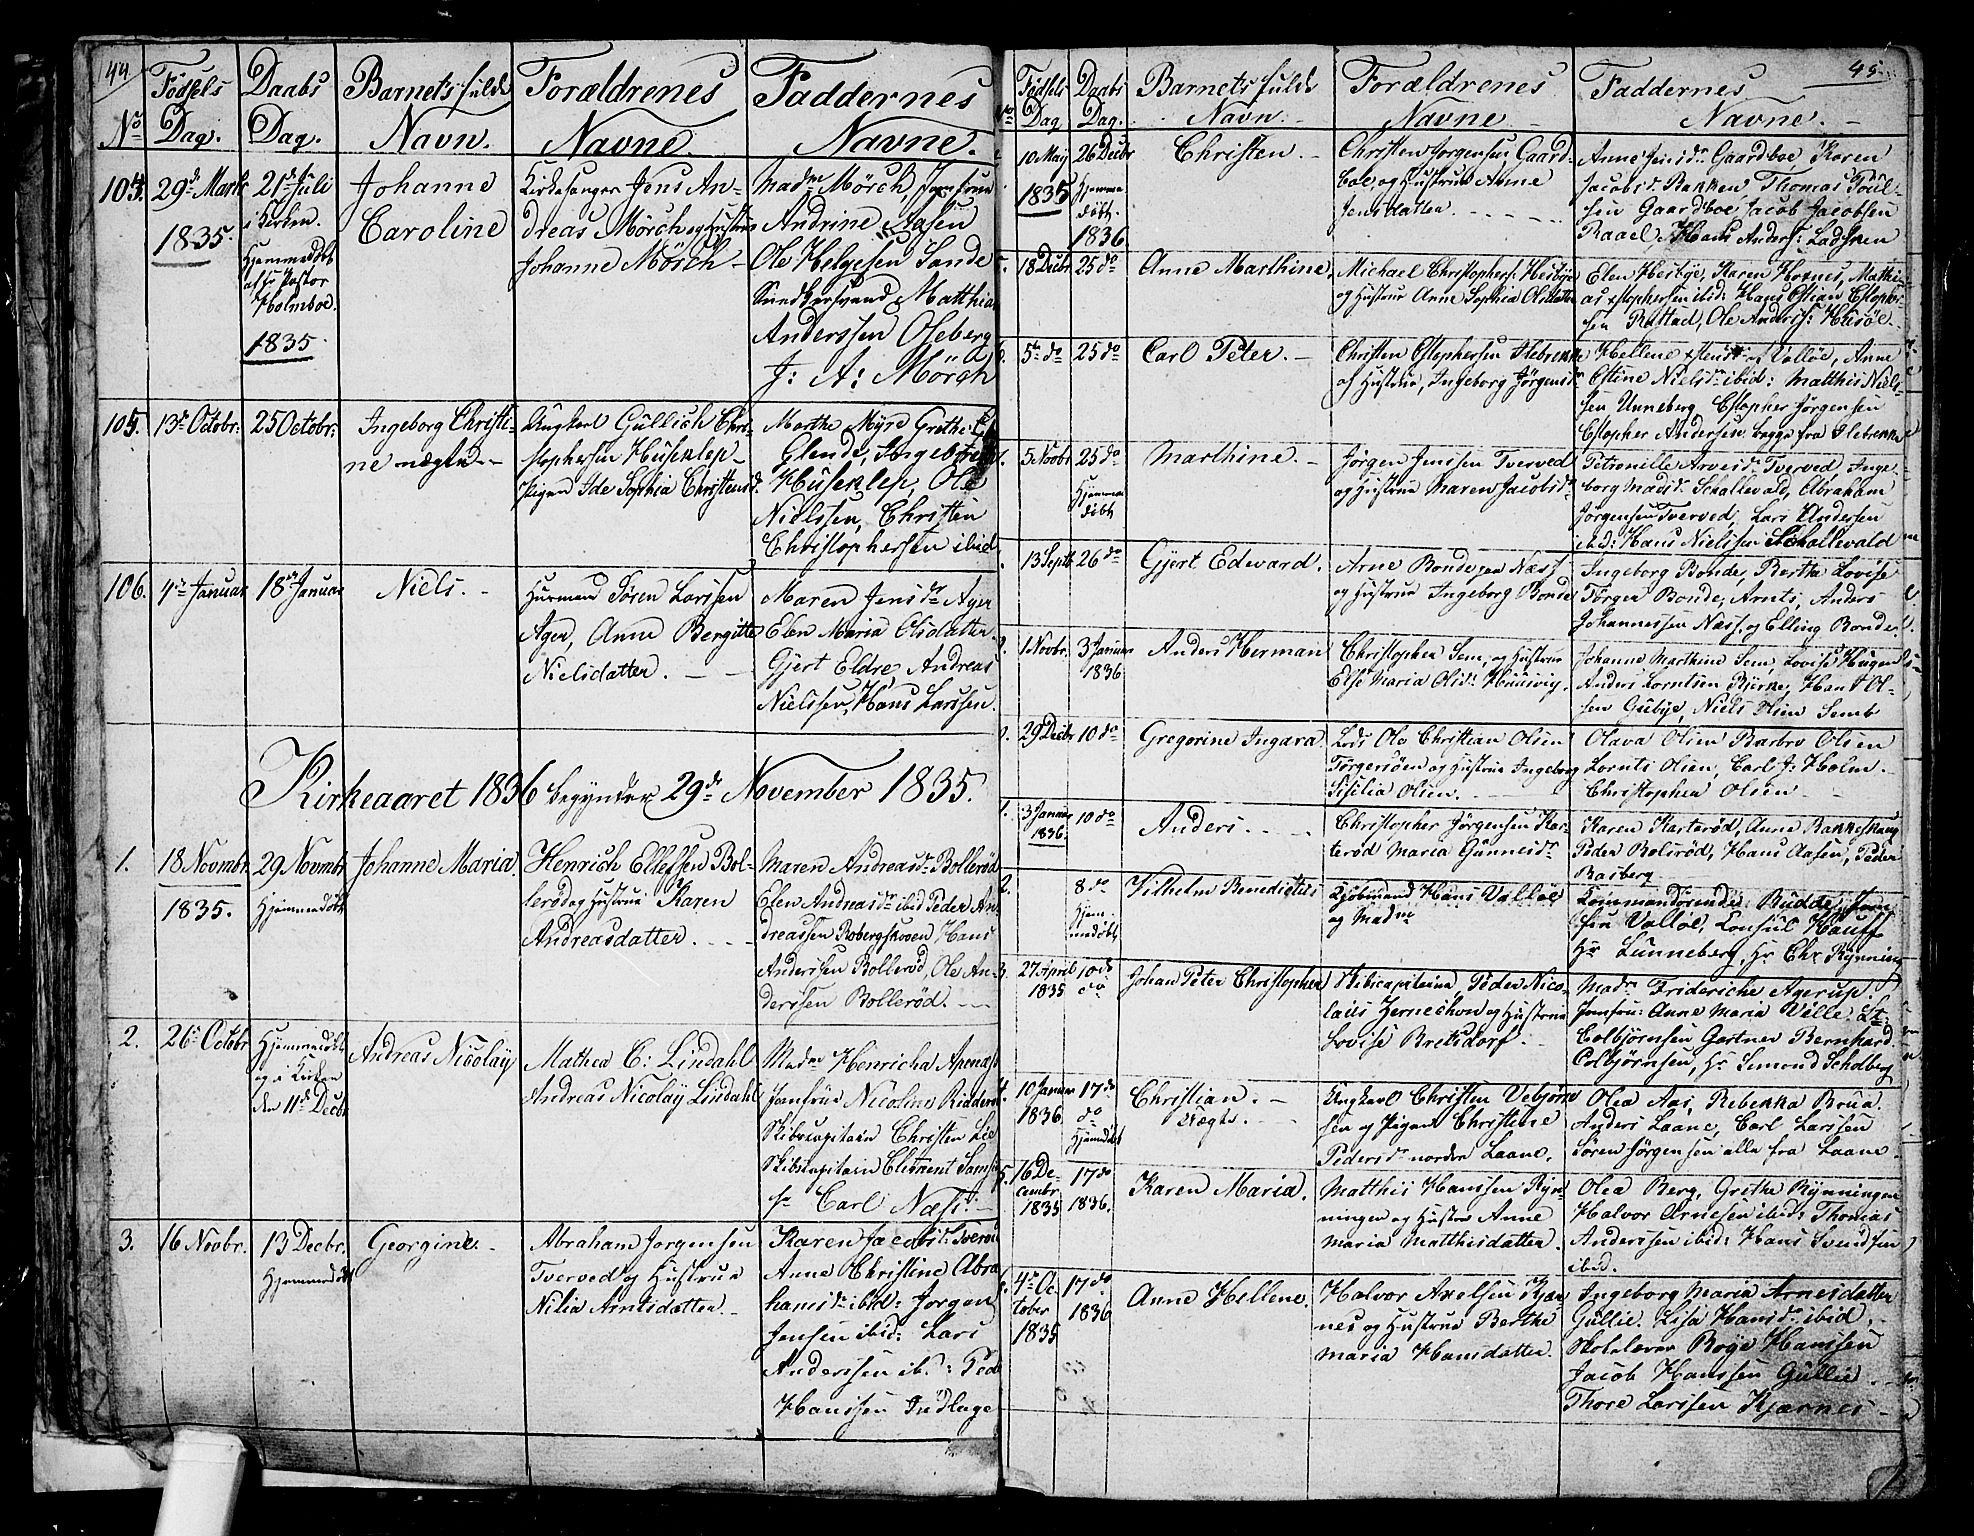 44
No
Fødsels
Dag.
Daabs
Dag.
Barnets fulde
Navn.
Forældrenes
Navne.
Faddernes
Navne.
104.
29de Marts
1835.
21de Juli
i Kirken.
Hjemmedøbt
af Hr Pastor
Holmboe.
1835.
Johanne
Caroline
Kirkesanger Jens An-
dreas Mörch og Hustru
Johanne Mörch
Madme Mörch, Jomfrue
Andrine Aasen
Ole Helgesen Sande
Matthias
Anderssen Oleberg
J: A: Mörch
105.
13de Octobr.
25 Octobr:
Ingeborg Christi-
ne uægte.
Ungkarl Gullich Chri-
stophersen Huseklep
Pigen Ide Sophia Christensd.
Marthe Myre Grethe
Glende, Ingeborg
Huseklep, Ole
Nielssen, Christen
Christophersen ibid
106.
4de Januar
18de Januar
Niels.
Huusmand Søren Larssen
Ager, Anne Bergitte
Nielsdatter.
Maren Jensdr Ager
Elen Maria Olsdatter
Gjert Eldre, Andreas
Nielssen, Hans Larssen.
Kirkeaaret 1836 begynder 29de November 1835.
1.
18 Novmbr
1835.
29 Novmbr
Hjemmedøbt
Johanne Maria.
Henrich Ellefsen Bol-
lerød og Hustrue Karen
Andreasdatter.
Maren Andreasdr Bollerød
Elen Andreasdr ibid Peder An-
dreassen Robergskoven Hans
Anderssen Bollerød, Ole An-
derssen Bollerød.
2.
26de Octobr
Hjemmedøbt
og i Kirken
den 11de Decbr
Andreas Nicolay
Mathea C: Lindahl
Andreas Nicolay Lindahl
Madme Henricha Apenæs
Jomfrue Nicoline
Skibscapitain Christen Lie
Skibscapitain Clement
Hr Carl Næss.
3.
16 Novbr.
13 Decbr.
Hjemmedøbt
Georgine.
Abraham Jørgensen
Tverved og Hustrue
Nilia Arntsdatter
Karen Jacobsdr Tverved
Anne Christine Abra
hamsdr ibid: Jørgen
Jensen ibid: Lars
Anderssen ib. : Peder
Hanssen Indlage
45.
No
Fødsels
Dag
Daabs
Dag.
Barnets fulde
Navn.
Forældrenes
Navne
Faddernes
Navne.
10 May
1835
26 Decbr
Hjemme
døbt.
1836
Christen.
Christen Jørgensen Gaard-
boe og Hustrue Anne
Jensdatter.
Anne Jensdr Gaardboe Karen
Jacobsdr Bakken Thomas Poul-
sen Gaardboe, Jacob Jacobsen
Raael Hans Anders:
18 Decbr
25 do
Anne Marthine.
Michael Christophers: Hesbye
og Hustrue Anne Sophia Olsdatter
Elen Hesbye, Karen Hornes, Mathi-
as Xstophersen ibid: Hans Cstian Cstopher-
sen Rastad, Ole Anderss: Husøe.
5te do
25 do
Carl Peter.
Christen Cstophersen Ilebrekke
og Hustrue, Ingeborg Jørgensdr
Hellene af Valløe, Anne
Cstine Nielsdr ibid: Matthis Niels-
sen Unneberg Cstopher Jørgensen
Cstopher Andersen begge fra Ilebrekke
5 Novbr
25 do
Hjemme
døbt
Marthine.
Jørgen Jenssen Tverved
og Hustrue Maren Jacobsdr
Petronille Arvesdr Tverved, Inge-
borg Madsdr Schallevald, Abraham
Jørgensen Tverved, Lars Andersen
ibid: Hans Nielssen Schallevald
13 Septb
26 do
Gjert Edward.
Arne Bonde paa Næss
og Hustrue Ingeborg Bonde
Ingeborg Bonde, Berthe Lovise
Tørger Bonde, Arnts, Anders
Johannessen Næss og Elling Bonde.
1 Novbr.
3 Januar
1836
Anders Herman
Christopher Sem, og Hustrue
Else Maria Olsdr Huusvig.
Johanne Marthine Sem, Lovise Haugen
Anders Lorntsen Bjerke, Hans Ol-
sen Gusbye, Niels Olsen Semb
29 Decbr
10 do
Gregorine Ingara.
Lods Ole Christian Olsen
Tørgersøen og Hustrue Ingeborg
Sisilia Olsen.
Olava Olsen Barbro Olsen
Lornts Olsen, Carl J: Holm.
Christopher Olsen
1.
3 Januar
1836.
10 do
Anders.
Christopher Jørgensen Kar-
terød Maria Gunnesdr
Karen Karterød, Anne Bakkeskaug
Peder Bolsrød, Hans Aasen, Peder
Basberg
2.
8 do
Hjem-
medøbt
Vilhelm Benedictus
Kjøbmand Hans Valløe
og Madme
Kommandørinde Budde, Jom-
frue Valløe, Consul Hauff
Hr Lunneberg, Hr Chr Rynning
3.
27 April
1835
10 do
do
Johan Peter Christopher
Skibscapitaine, Peder Nico-
laus og Hustrue
Lovise Bretsdorf.
Madm Frideriche Agerup.
Jomfru: Anne Maria Ville. Lt:
Colbjørnsen Gartner Bernhard
Colbjørnsen, Hr Simond Scholberg
4.
10 Januar
1836
17 do
do
Hjemdøbt
Christian.
Uægte.
Ungkarl Christen Vebjørn-
sen og Pigen Christine
Pedersdr nordre Laane.
Olea Aas, Rebekka Brua.
Anders Laane, Carl Larssen
Søren Jørgensen alle fra Laane.
5.
16 De-
cembr
1835
17 do
1836.
Karen Maria.
Matthis Hanssen Ryn-
ningen og Hustrue Anne
Maria Matthisdatter.
Olea Berg, Grethe Rynningen
Halvor Arnesen ibid: Thomas
Anderssen ibid: Hans Svendsen
ibid.
4de Oc
tober
1835
17 do
1836
Anne Hellene.
Halvor Axelsen Kjær-
nes og Hustrue Berthe
Maria Hansdatter.
Ingeborg Maria Arnesdatter
Gullie. Lisa Hansdr ibid.
Skolelærer Boye Hanssen
Jacob Hanssen Gullie.
Thore Larssen Kjærnes